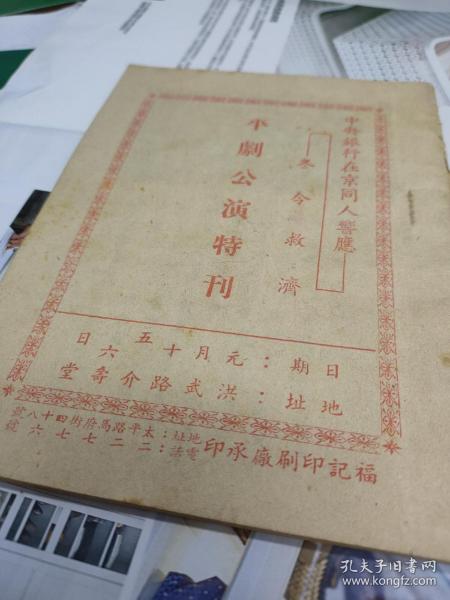 中央銀行在京同人響應
冬令救濟
平劇公演特刊
日期：元月十五六日
地址：洪武路介壽堂
福記印刷廠承印
地址：太平路馬府街四十八號
電話：二二七七六號
孔夫子旧书网
www.kongfz.com